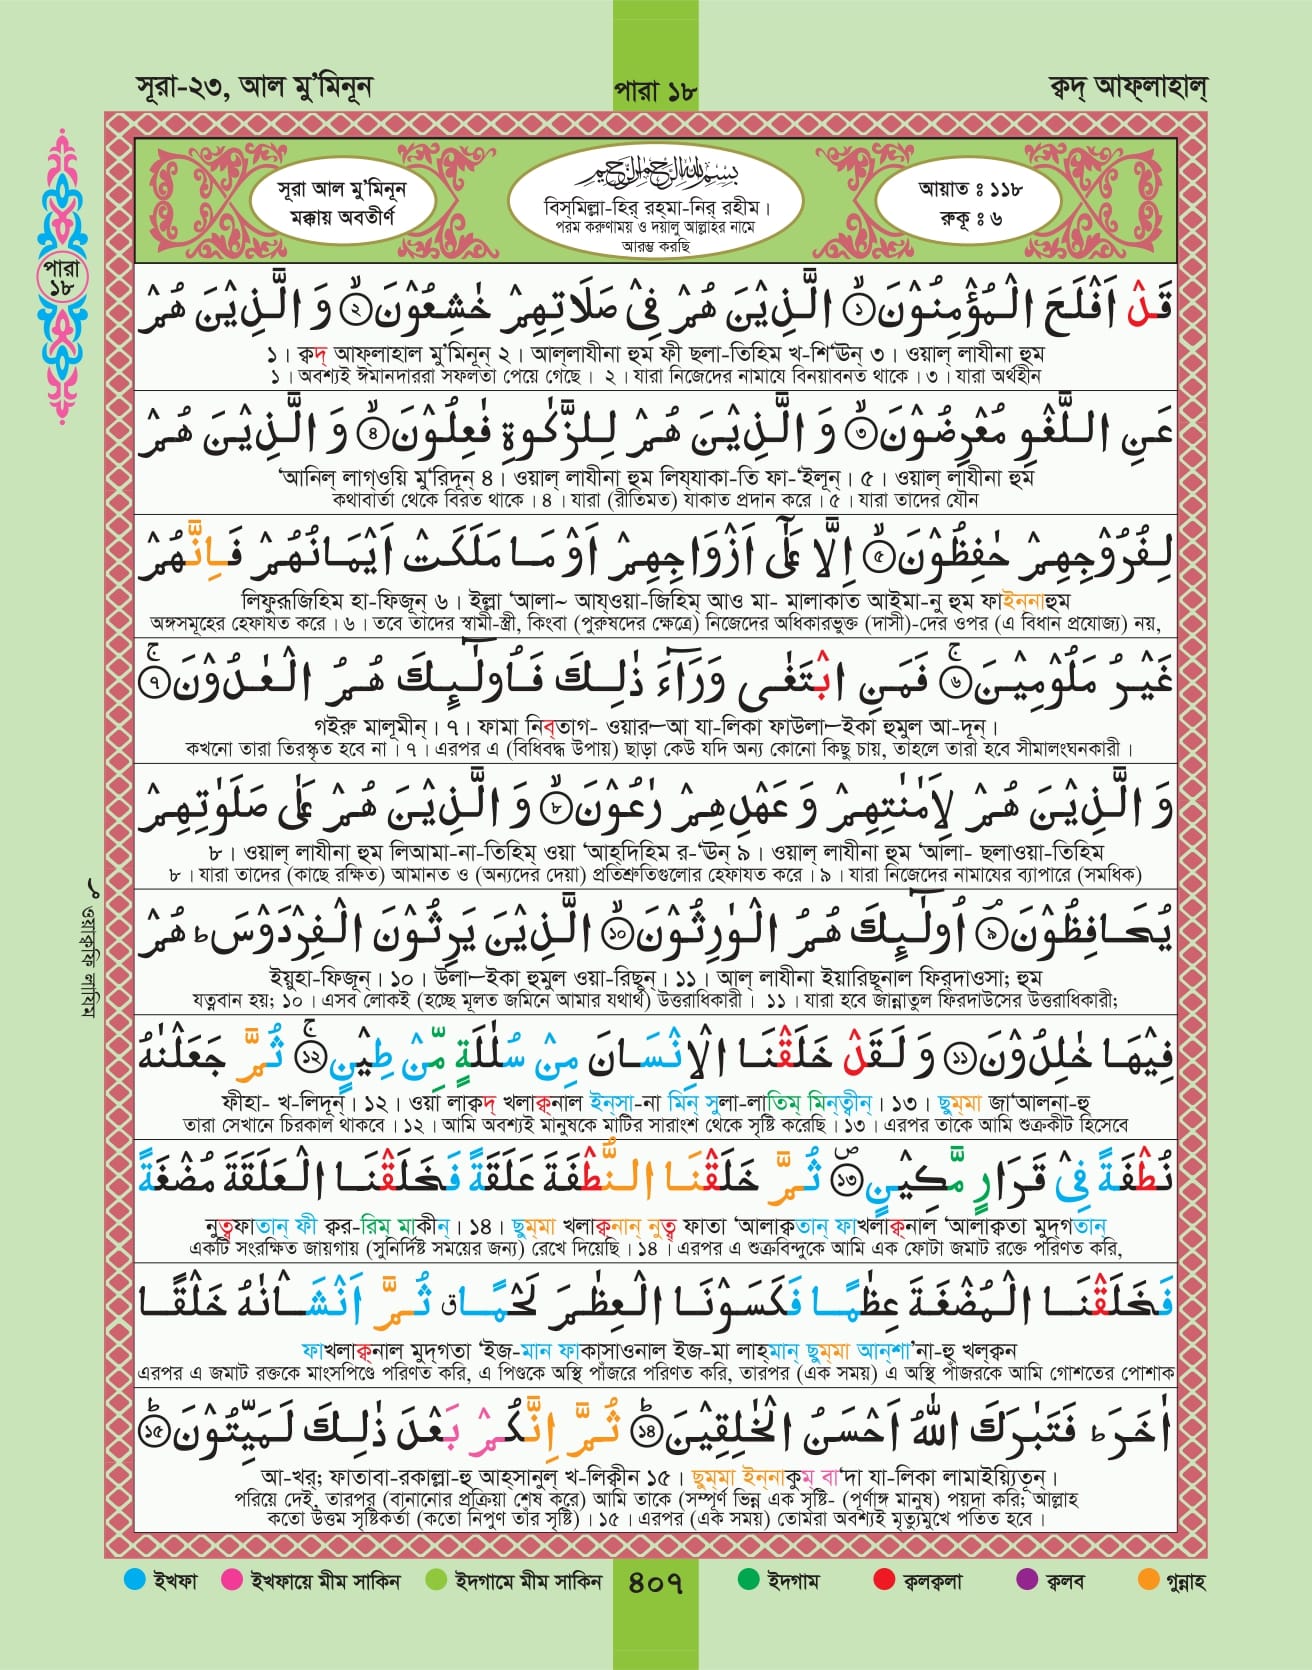 সূরা-২৩, আল মু’মিনূন
পারা ১৮
ক্বদ্ আফ্‌লাহাল্
সূরা আল মু’মিনূন
মক্কায় অবতীর্ণ
بِسْمِ اللهِ الرَّحْمٰنِ الرَّحِيْمِ
বিস্‌মিল্লা-হির্ রহ্‌মা-নির্ রহীম।
পরম করুণাময় ও দয়ালু আল্লাহর নামে
আরম্ভ করছি
আয়াত ঃ ১১৮
রুকূ ঃ ৬
পারা
১৮
قَدْ اَفْلَحَ الْمُؤْمِنُوْنَ ۙ﴿১﴾ الَّذِيْنَ هُمْ فِيْ صَلَاتِهِمْ خٰشِعُوْنَ ۙ﴿২﴾ وَ الَّذِيْنَ هُمْ
১। ক্বদ্ আফ্‌লাহাল মু’মিনূন্ ২। আল্‌লাযীনা হুম ফী ছলা-তিহিম খ-শি‘ঊন্ ৩। ওয়াল্ লাযীনা হুম
১। অবশ্যই ঈমানদাররা সফলতা পেয়ে গেছে। ২। যারা নিজেদের নামাযে বিনয়াবনত থাকে। ৩। যারা অর্থহীন
عَنِ اللَّغْوِ مُعْرِضُوْنَ ۙ﴿৩﴾ وَ الَّذِيْنَ هُمْ لِلزَّكٰوةِ فٰعِلُوْنَ ۙ﴿৪﴾ وَ الَّذِيْنَ هُمْ
‘আনিল্ লাগ্‌ওয়ি মু‘রিদূন্ ৪। ওয়াল্ লাযীনা হুম লিয্‌যাকা-তি ফা-‘ইলূন্। ৫। ওয়াল্ লাযীনা হুম
কথাবার্তা থেকে বিরত থাকে। ৪। যারা (রীতিমত) যাকাত প্রদান করে। ৫। যারা তাদের যৌন
لِفُرُوْجِهِمْ حٰفِظُوْنَ ۙ﴿৫﴾ اِلَّا عَلٰٓى اَزْوَاجِهِمْ اَوْ مَا مَلَكَتْ اَيْمَانُهُمْ فَاِنَّهُمْ
লিফুরূজিহিম হা-ফিজূন্ ৬। ইল্লা ‘আলা~ আয্‌ওয়া-জিহিম্ আও মা- মালাকাত আইমা-নু হুম ফাইন্‌নাহুম
অঙ্গসমূহের হেফাযত করে। ৬। তবে তাদের স্বামী-স্ত্রী, কিংবা (পুরুষদের ক্ষেত্রে) নিজেদের অধিকারভুক্ত (দাসী)-দের ওপর (এ বিধান প্রযোজ্য) নয়,
غَيْرُ مَلُوْمِيْنَ ۚ﴿৬﴾ فَمَنِ ابْتَغٰى وَرَآءَ ذٰلِكَ فَاُولٰٓئِكَ هُمُ الْعٰدُوْنَ ۚ﴿৭﴾
গইরু মালূমীন্। ৭। ফামা নিব্‌তাগ- ওয়ার—আ যা-লিকা ফাউলা—ইকা হুমুল আ-দূন্।
কখনো তারা তিরস্কৃত হবে না। ৭। এরপর এ (বিধিবদ্ধ উপায়) ছাড়া কেউ যদি অন্য কোনো কিছু চায়, তাহলে তারা হবে সীমালংঘনকারী।
وَ الَّذِيْنَ هُمْ لِاَمٰنٰتِهِمْ وَ عَهْدِهِمْ رٰعُوْنَ ۙ﴿৮﴾ وَ الَّذِيْنَ هُمْ عَلٰى صَلَوٰتِهِمْ
৮। ওয়াল্ লাযীনা হুম লিআমা-না-তিহিম্ ওয়া ‘আহ্‌দিহিম র-‘ঊন্ ৯। ওয়াল্ লাযীনা হুম ‘আলা- ছলাওয়া-তিহিম
৮। যারা তাদের (কাছে রক্ষিত) আমানত ও (অন্যদের দেয়া) প্রতিশ্রুতিগুলোর হেফাযত করে। ৯। যারা নিজেদের নামাযের ব্যাপারে (সমধিক)
يُحَافِظُوْنَ ۘ﴿৯﴾ اُولٰٓئِكَ هُمُ الْوٰرِثُوْنَ ۙ﴿১০﴾ الَّذِيْنَ يَرِثُوْنَ الْفِرْدَوْسَ ؕ هُمْ
ইয়ুহা-ফিজূন্। ১০। উলা—ইকা হুমুল ওয়া-রিছূন্। ১১। আল্ লাযীনা ইয়ারিছূনাল ফির্‌দাওসা; হুম
যত্নবান হয়; ১০। এসব লোকই (হচ্ছে মূলত জমিনে আমার যথার্থ) উত্তরাধিকারী। ১১। যারা হবে জান্নাতুল ফিরদাউসের উত্তরাধিকারী;
ওয়াক্বফি লাযিম
فِيْهَا خٰلِدُوْنَ ﴿১১﴾ وَ لَقَدْ خَلَقْنَا الْاِنْسَانَ مِنْ سُلٰلَةٍ مِّنْ طِيْنٍ ۚ﴿১২﴾ ثُمَّ جَعَلْنٰهُ
ফীহা- খ-লিদূন্। ১২। ওয়া লাক্বদ্ খলাক্ব্‌নাল ইন্‌সা-না মিন্ সুলা-লাতিম্ মিন্‌ত্বীন্। ১৩। ছুম্‌মা জা‘আলনা-হু
তারা সেখানে চিরকাল থাকবে। ১২। আমি অবশ্যই মানুষকে মাটির সারাংশ থেকে সৃষ্টি করেছি। ১৩। এরপর তাকে আমি শুক্রকীট হিসেবে
نُطْفَةً فِيْ قَرَارٍ مَّكِيْنٍ ۪﴿১৩﴾ ثُمَّ خَلَقْنَا النُّطْفَةَ عَلَقَةً فَخَلَقْنَا الْعَلَقَةَ مُضْغَةً
নুত্ব্‌ফাতান্ ফী ক্বর-রিম্ মাকীন্। ১৪। ছুম্‌মা খলাক্ব্‌নান্ নুত্ব্ ফাতা ‘আলাক্বতান্ ফাখলাক্ব্‌নাল ‘আলাক্বতা মুদ্‌গতান্
একটি সংরক্ষিত জায়গায় (সুনির্দিষ্ট সময়ের জন্য) রেখে দিয়েছি। ১৪। এরপর এ শুক্রবিন্দুকে আমি এক ফোটা জমাট রক্তে পরিণত করি,
فَخَلَقْنَا الْمُضْغَةَ عِظٰمًا فَكَسَوْنَا الْعِظٰمَ لَحْمًا ۗ ثُمَّ اَنْشَاْنٰهُ خَلْقًا
ফাখলাক্ব্‌নাল মুদ্‌গতা ‘ইজ-মান ফাকাসাওনাল ইজ-মা লাহ্‌মান্ ছুম্‌মা আন্‌শা’না-হু খল্‌ক্বন
এরপর এ জমাট রক্তকে মাংসপিণ্ডে পরিণত করি, এ পিণ্ডকে অস্থি পাঁজরে পরিণত করি, তারপর (এক সময়) এ অস্থি পাঁজরকে আমি গোশতের পোশাক
اٰخَرَ ؕ فَتَبٰرَكَ اللهُ اَحْسَنُ الْخٰلِقِيْنَ ؕ﴿১৪﴾ ثُمَّ اِنَّكُمْ بَعْدَ ذٰلِكَ لَمَيِّتُوْنَ ؕ﴿১৫﴾
আ-খর্; ফাতাবা-রকাল্লা-হু আহ্‌সানুল্ খ-লিক্বীন ১৫। ছুম্‌মা ইন্‌নাকুম্ বা‘দা যা-লিকা লামাইয়্যিতূন্।
পরিয়ে দেই, তারপর (বানানোর প্রক্রিয়া শেষ করে) আমি তাকে (সম্পূর্ণ ভিন্ন এক সৃষ্টি- (পূর্ণাঙ্গ মানুষ) পয়দা করি; আল্লাহ
কতো উত্তম সৃষ্টিকর্তা (কতো নিপুণ তাঁর সৃষ্টি)। ১৫। এরপর (এক সময়) তোমরা অবশ্যই মৃত্যুমুখে পতিত হবে।
ইখফা
ইখফায়ে মীম সাকিন
ইদগামে মীম সাকিন
৪০৭
ইদগাম
ক্বলক্বলা
ক্বলব
গুন্নাহ